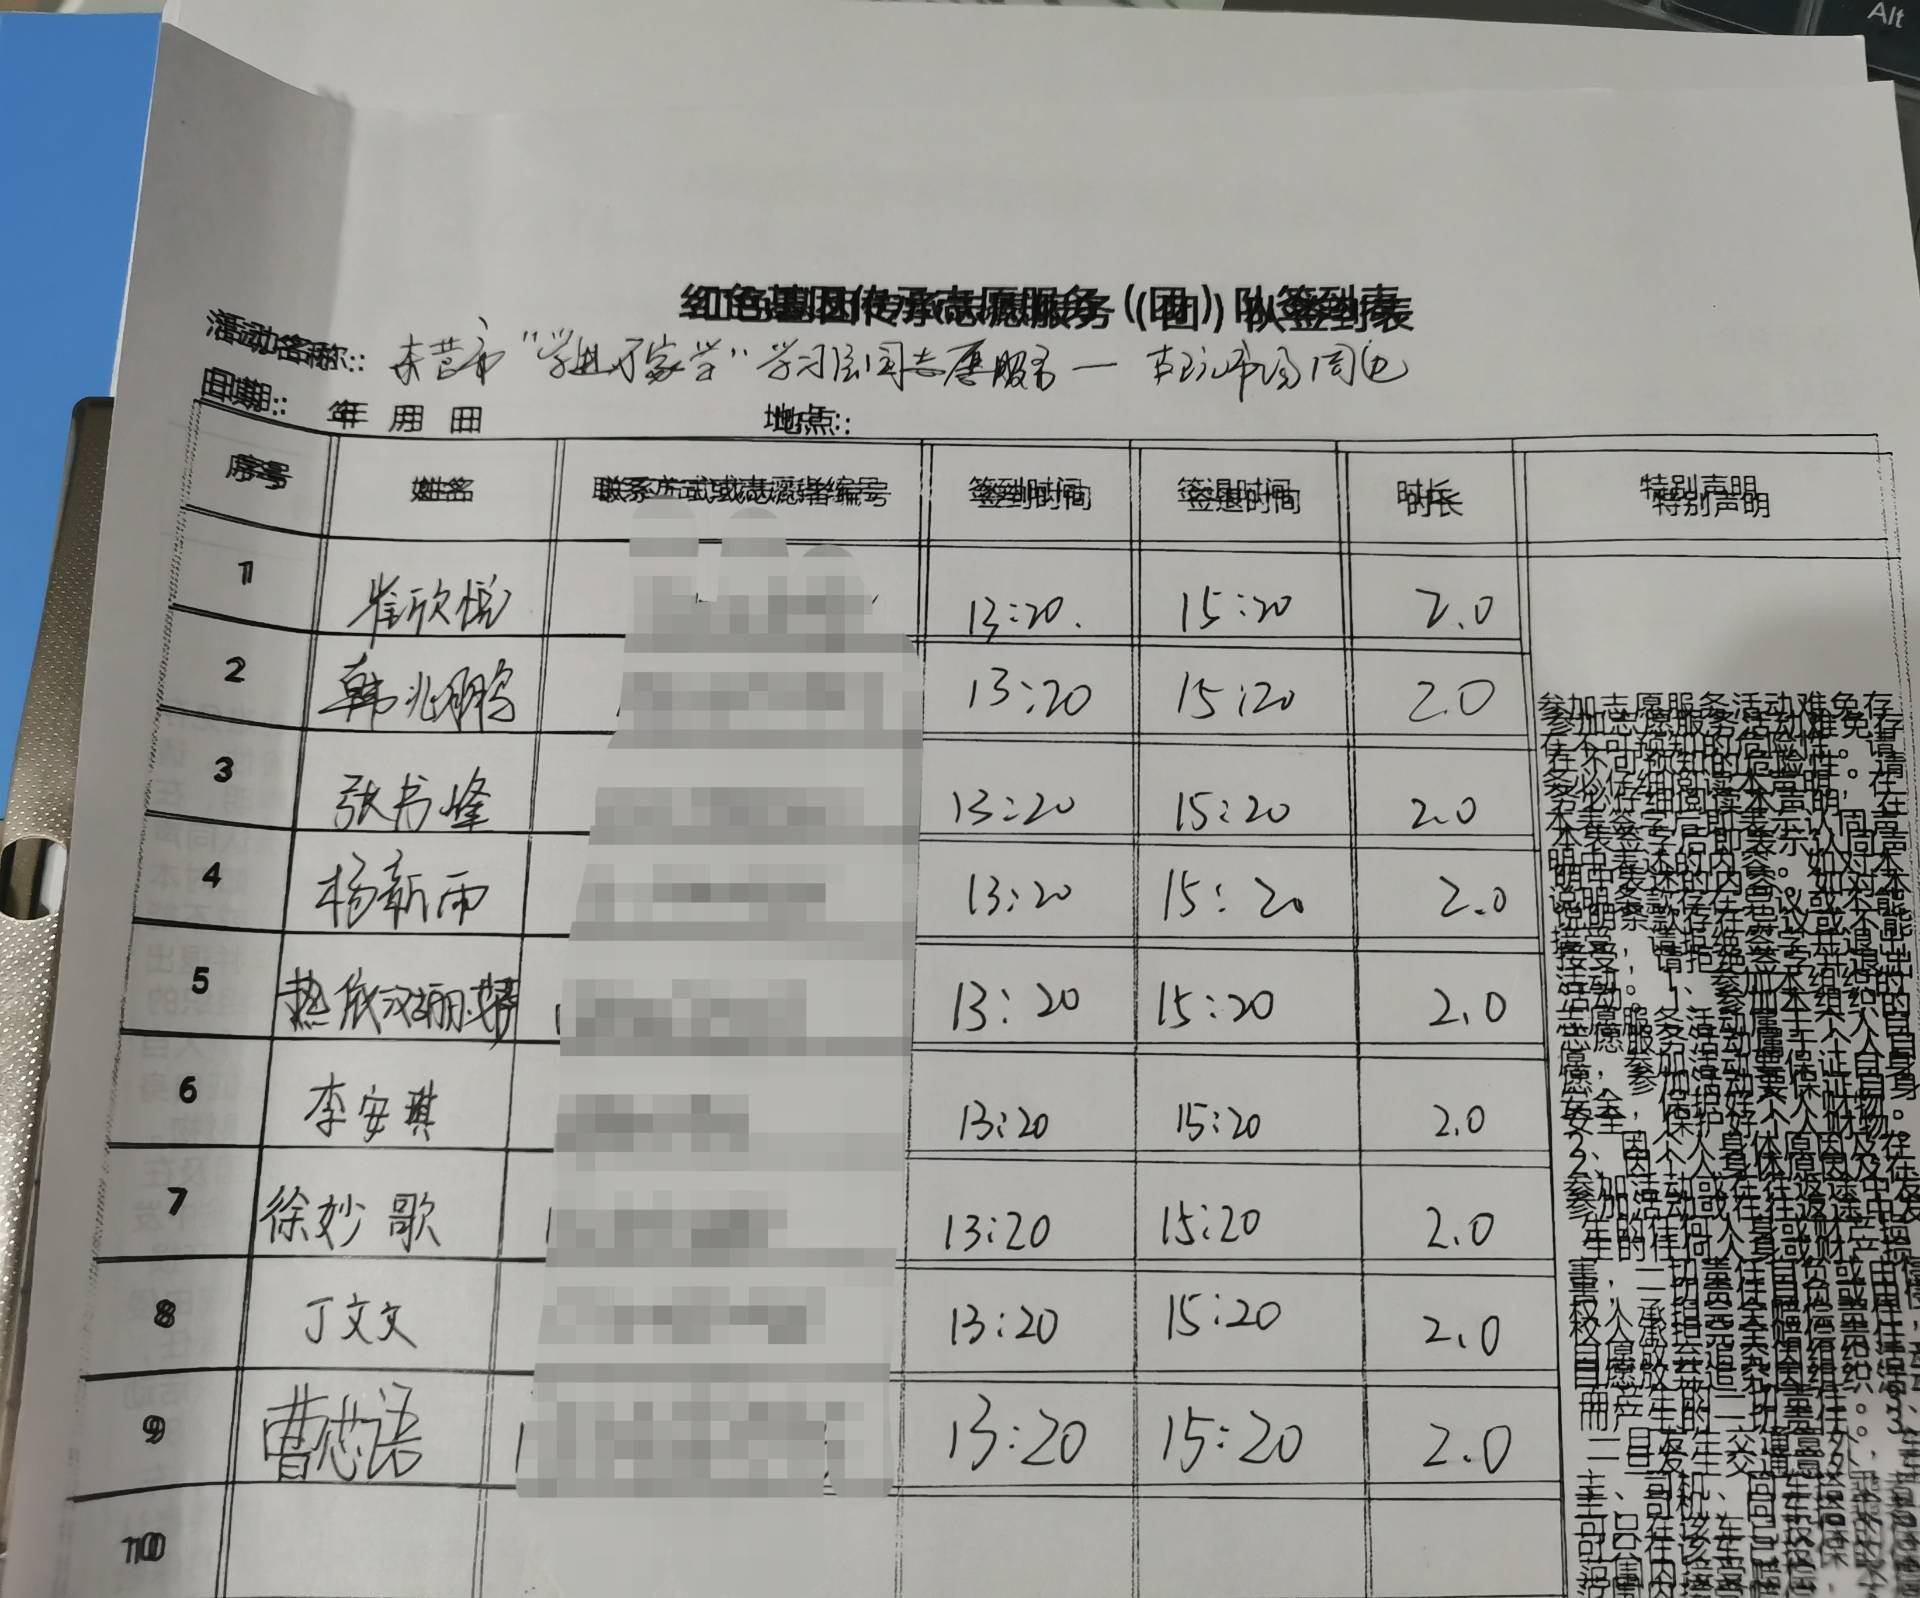 Alt
红色基因传承志愿服务（团）队签到表
活动名称： 东营市“学进万家学”学习 志愿服务一 市场周边
日期： 年 月 日 地点：
序号 姓名 联系方式或志愿者编号 签到时间 签退时间 时长 特别声明
1 崔欣悦 13:20. 15:20 2.0
2 韩兆鹏 13:20 15:20 2.0
3 张书峰 13:20 15:20 2.0
4 杨新雨 13:20 15:20 2.0
5 热依 13:20 15:20 2.0
6 李安琪 13:20 15:20 2.0
7 徐妙歌 13:20 15:20 2.0
8 丁文文 13:20 15:20 2.0
9 曹 语 13:20 15:20 2.0
10
参加志愿服务活动难免存
在不可预知的危险性。请
务必仔细阅读本声明，在
本表签字后即表示认同声
明中表述的内容。如对本
说明条款存在异议或不能
接受，请拒绝签字并退出
活动。1、参加本组织的
志愿服务活动属于个人自
愿，参加活动要保证自身
安全，保护好个人财物。
2、因个人身体原因及在
参加活动或在往返途中发
生的任何人身或财产损
害，一切责任自负或由侵
权人承担完全赔偿责任，
自愿放弃追究因组织活动
而产生的一切责任。3、
一旦发生交通意外，
主、司机、同车搭
可只在该车已投保
范围内接受